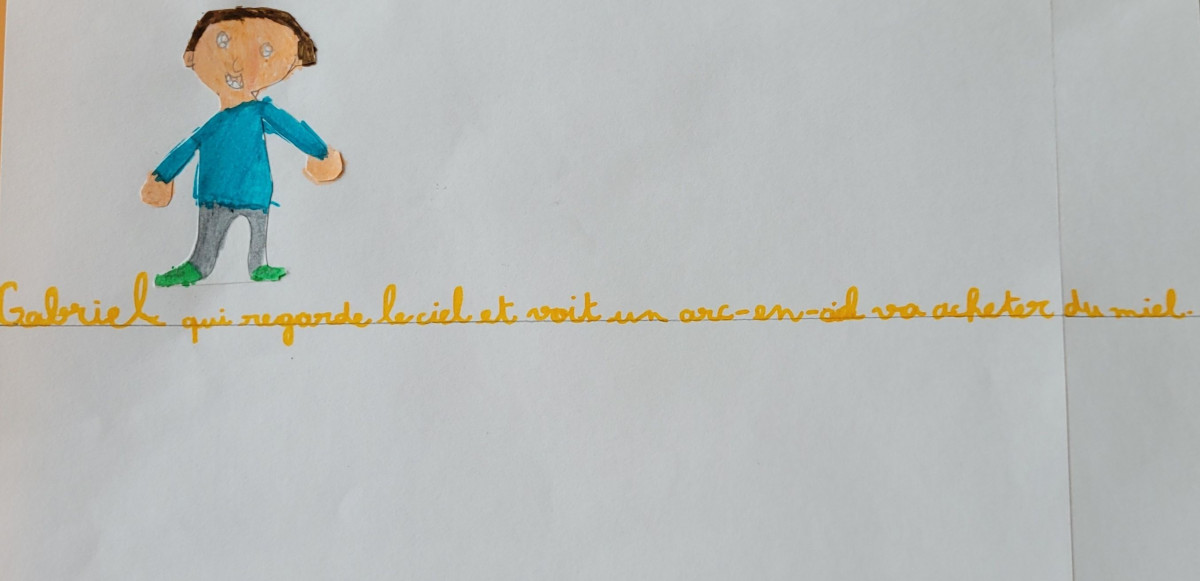 Gabriel qui regarde le ciel et voit un arc-en-ciel va acheter du miel.